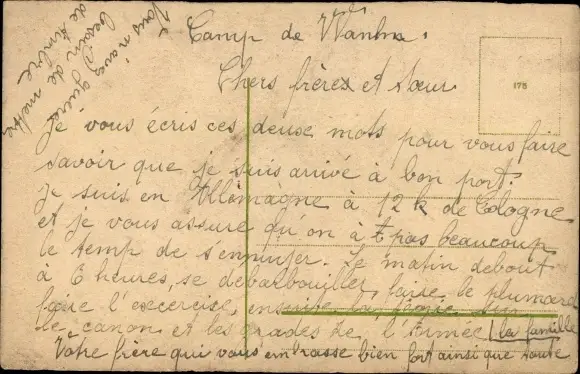 Camp de Wanhn.
Chers frères et sœur
je vous écris ces deuse mots pour vous faire
savoir que je suis arrivé à bon port.
je suis en Allemagne à 12 k de Cologne
et je vous assure qu'on à t pas beaucoup
le temp de s'ennuyer. Le matin debout
à 6 heures, se débarbouiller, faire le plumard
faire l'excercise, ensuite la sur
le canon et les grades de l'Armée (la famille
Votre frère qui vous em'rasse bien fort ainsi que toute
Vous n'avez guère
besoin de mettre
de timbre
175